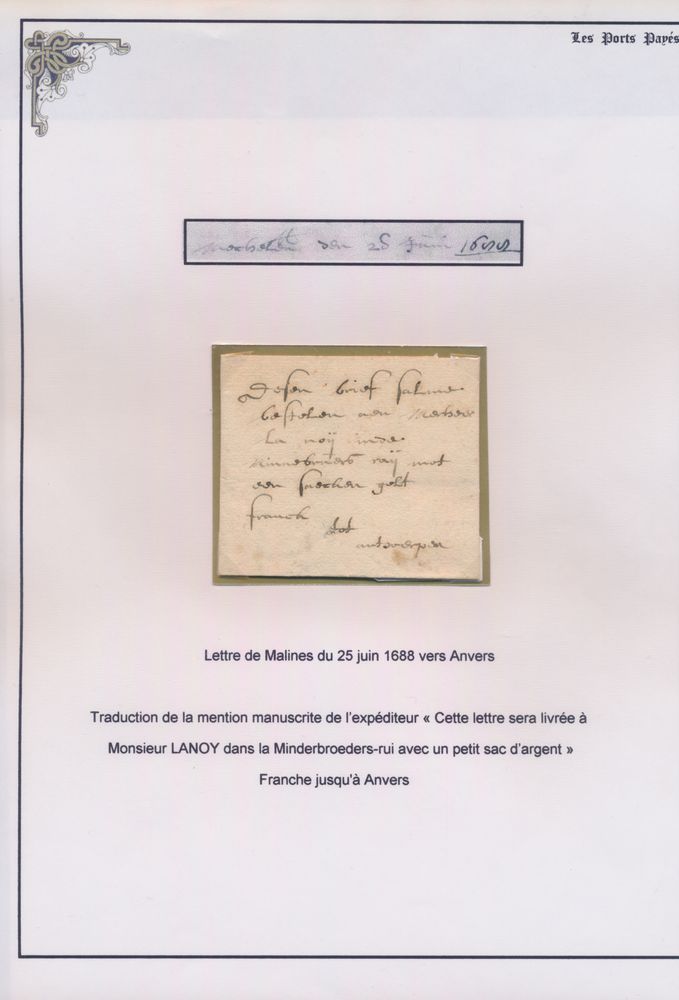 Les Ports Payés
Mechelen den 26 Juni 1688
Desen brief salmen
bestelen aen Meheer
La noÿ inde
minnebruers raÿ met
een saecken gelt
franck tot
antwerpen
Lettre de Malines du 25 juin 1688 vers Anvers
Traduction de la mention manuscrite de l'expéditeur « Cette lettre sera livrée à
Monsieur LANOY dans la Minderbroeders-rui avec un petit sac d'argent »
Franche jusqu'à Anvers